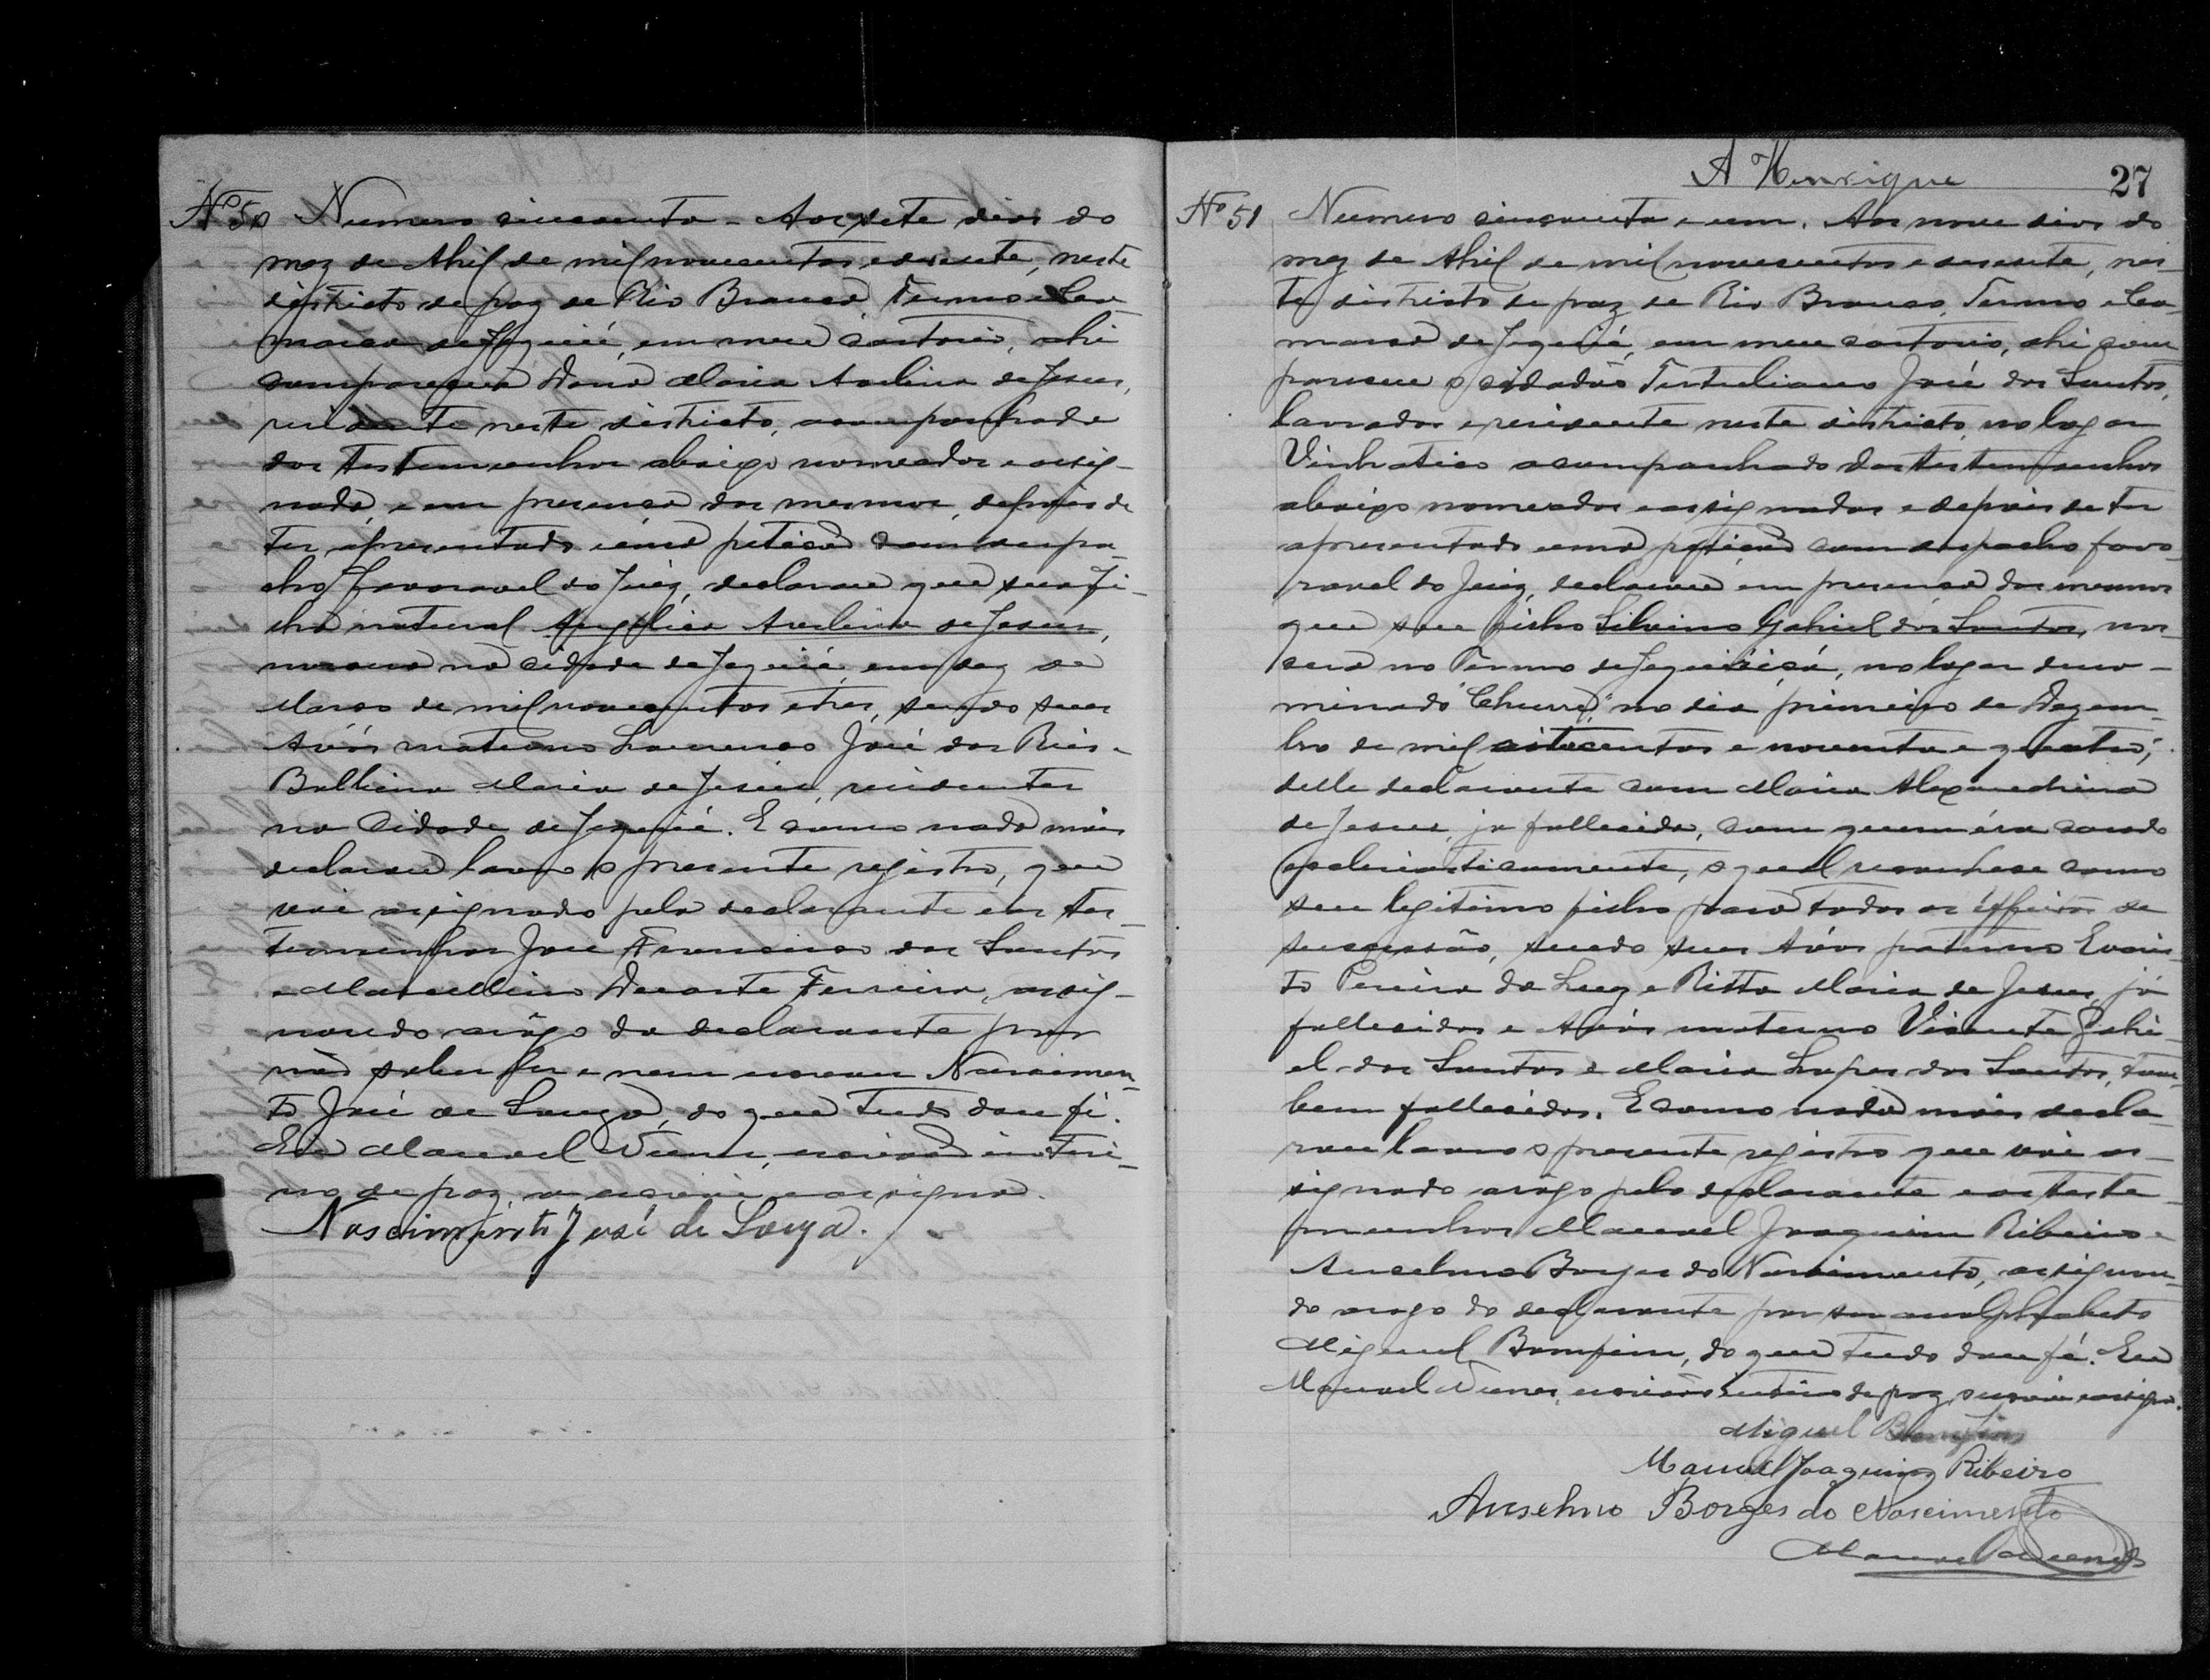 Nº 50 Numero sincoenta - Aos sete dias do
mez de Abril de mil novecentos e desesete, neste
districto de paz de Rio Branco Termo e Co-
marca de Jequié, em meu cartorio, ahi
compareceu Dona Maria Avelina de Jesus,
residente neste districto, acompanhada
das testemunhas abaixo nomeadas e assig-
nada, e em presença das mesmas, depois de
ter apresentado uma petição com despa-
cho favoravel do Juiz, declarou que sua fi-
lha natural Angelica Avelina de Jesus,
nasceu na cidade de Jequié, em dez de
Março de mil novecentos e tres, sendo seus
Avós materno Lourenço José dos Reis e
Balbina Maria de Jesus, residentes
na Cidade de Jequié. E como nada mais
declarou lavro o presente registro, que
vai assignado pela declarante e as tes-
temunhas José Francisco dos Santos
e Marcellino Duarte Ferreira, assig-
nando arôgo da declarante por
não saber ler e nem escrever Nascimen-
to José de Souza, do que tudo dou fé.
Eu Manoel Nunes, escrivão interi-
no de paz, o escrevi e assigno.
Nascimento José de Souza.
A Henrique
27
Nº 51 Numero sincoenta e um. Aos nove dias do
mez de Abril de mil novecentos e desesete, nes-
te districto de paz de Rio Branco, Termo e Co-
marca de Jequié, em meu cartorio, ahi com
pareceu o cidadão Tertuliano José dos Santos,
lavrador e residente neste districto, no logar
Vinhatico acompanhado das testemunhas
abaixo nomeadas e assignadas e depois de ter
apresentado uma petição com despacho favo-
ravel do Juiz, declarou em presença das mesmas
que seu filho Silvino Gabriel dos Santos, nas-
ceu no Termo de Jequiriçá, no logar deno-
minado "Churé", no dia primeiro de Dezem-
bro de mil oitocentos e noventa e quatro,
delle declarante com Maria Alexandrina
de Jesus, ja fallecida, com quem éra casado
ecclesiasticamente, o qual reconhece como
seu legitimo filho para todos os effeitos de
sucessão, sendo seus Avós paterno Evaris-
to Pereira da Luz e Ritta Maria de Jesus, já
fallecidos e Avós materno Vicente Gabri-
el dos Santos e Maria Lopes dos Santos, tam-
bem fallecidos. E como nada mais decla-
rou lavro o presente registro que vai as-
signado arôgo pelo declarante e as teste-
munhas Manoel Joaquim Ribeiro e
Anselmo Borges do Nascimento, assignan-
do arogo do declarante por ser analphabeto
Miguel Bomfim, do que tudo dou fé. Eu
Manoel Nunes, escrivão interino de paz, o escrevi e assigno.
Miguel Bomfim
Manuel Joaquim Ribeiro
Anselmo Borges do Nascimento
Manoel Nunes